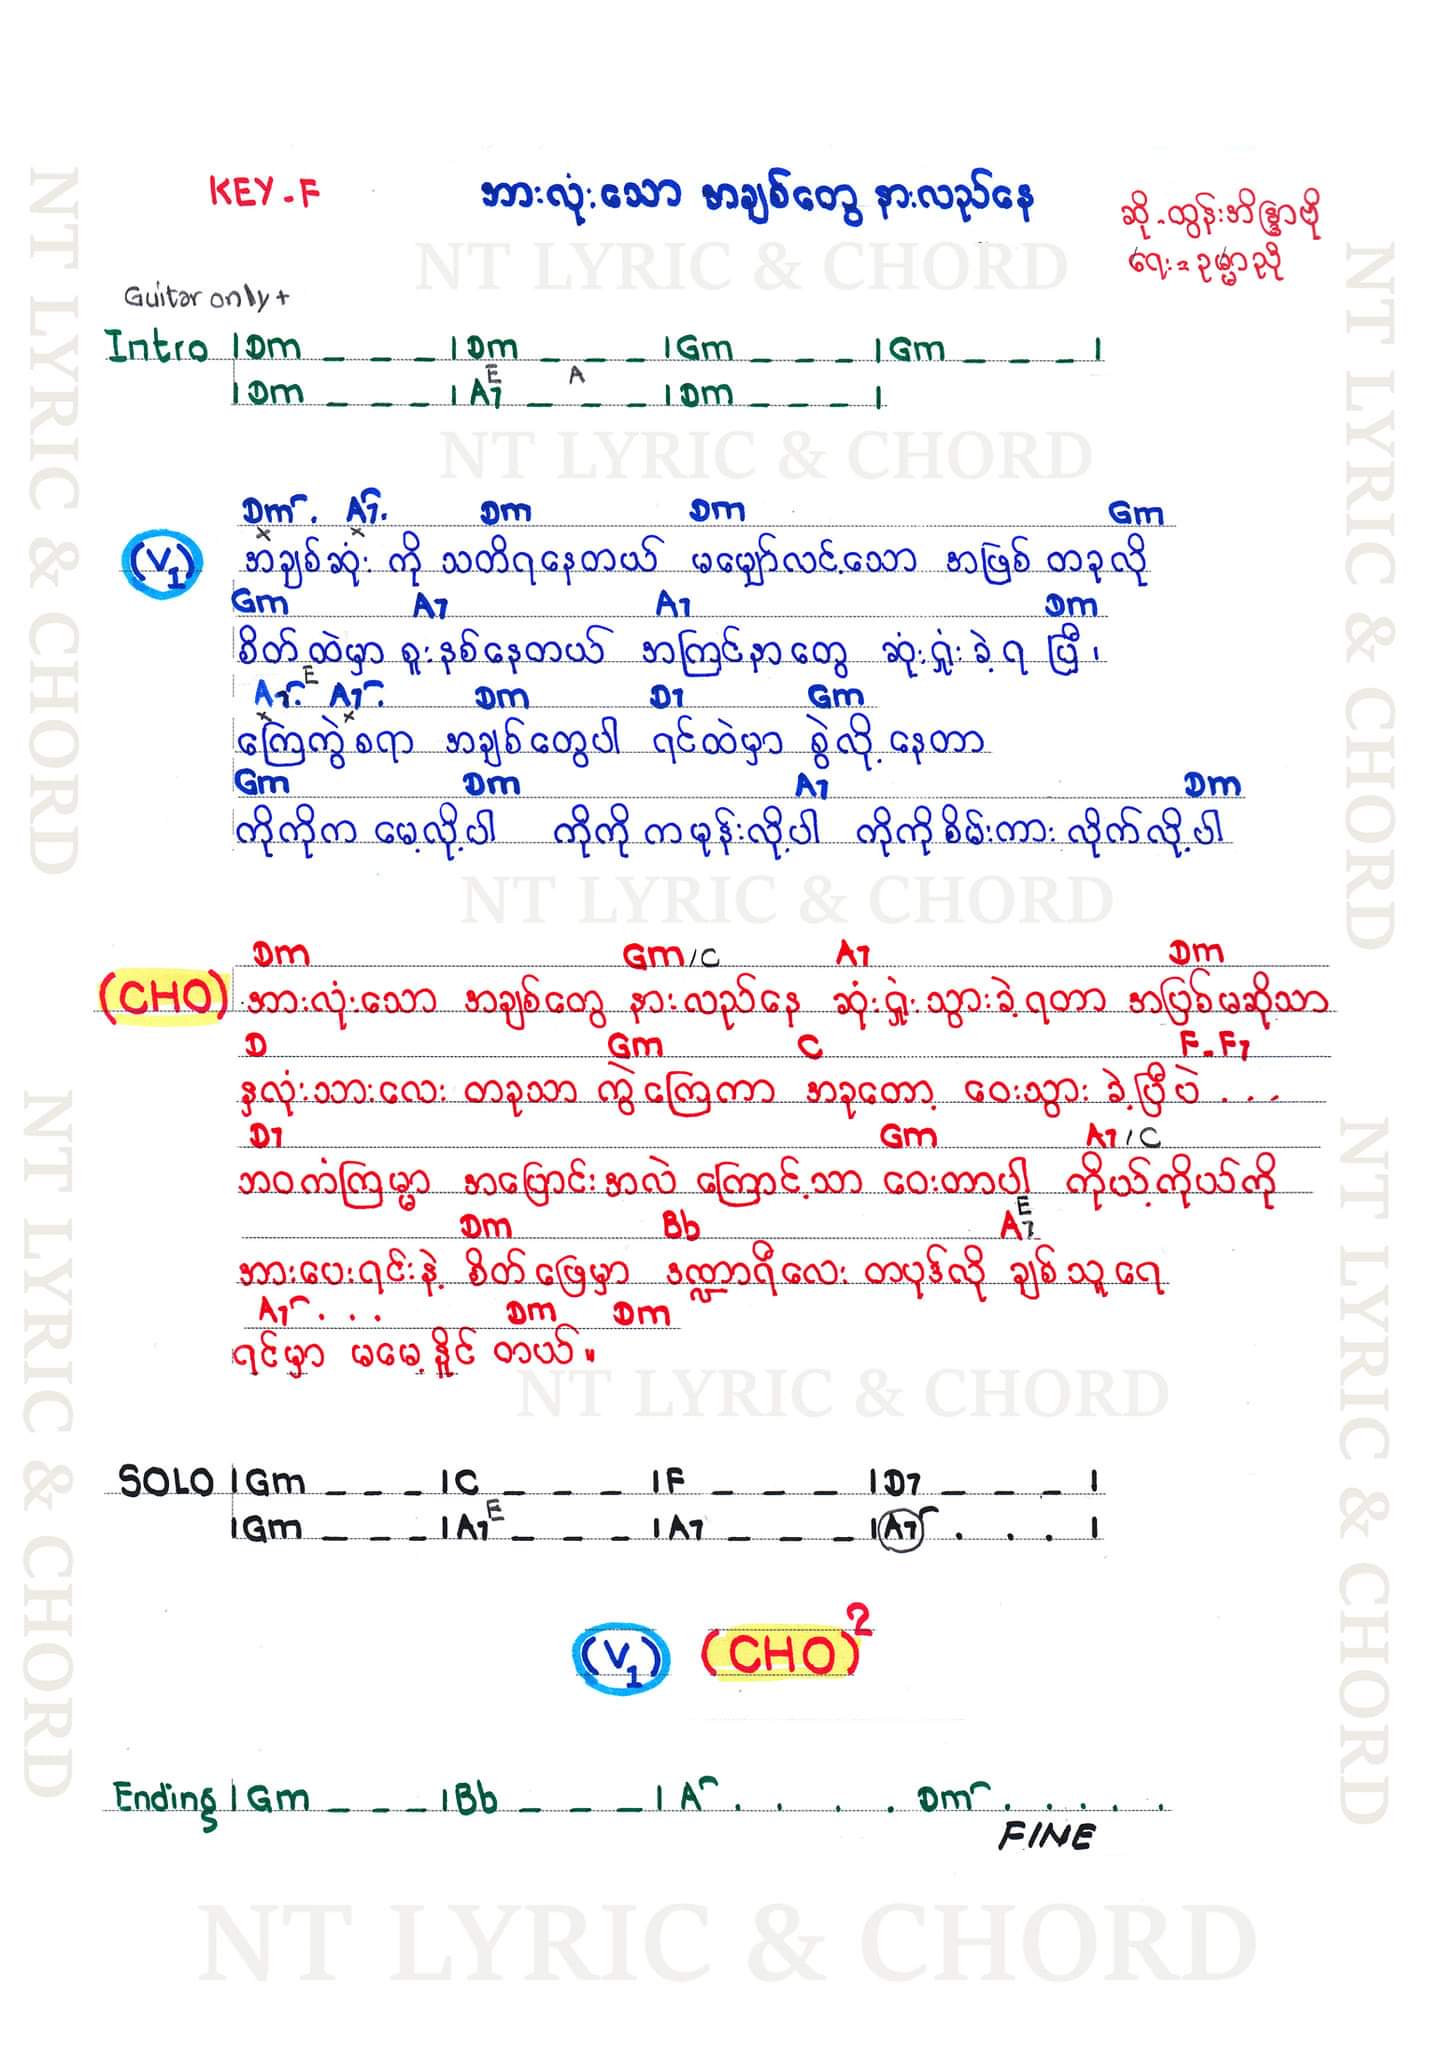 KEY-F
အားလုံးသော အချစ်တွေ နားလည်နေ
ဆို-ထွန်းအိန္ဒြာဗို
ရေး=ဥမ္မာညို
NT LYRIC & CHORD
Guitar only +
Intro |Dm _ _ _ |Dm _ _ _ |Gm _ _ _ |Gm _ _ _ |
E A
|Dm _ _ _ |A7 _ _ _ |Dm _ _ _ |
NT LYRIC & CHORD
Dm . A7 . Dm Dm Gm
x x
(V1) အချစ်ဆုံး ကို သတိရနေတယ် မမျှော်လင့်သော အဖြစ် တခုလို
Gm A7 A7 Dm
စိတ်ထဲမှာ စူးနစ်နေတယ် အကြင်နာတွေ ဆုံးရှုံးခဲ့ရ ပြီ၊
A7 . E A7 . Dm D7 Gm
x x
ကြေကွဲစရာ အချစ်တွေပါ ရင်ထဲမှာ စွဲလို့နေတာ
Gm Dm A7 Dm
ကိုကိုက မေ့လို့ပါ ကိုကိုကမုန်းလို့ပါ ကိုကိုစိမ်းကားလိုက်လို့ပါ
NT LYRIC & CHORD
Dm Gm/C A7 Dm
(CHO) အားလုံးသော အချစ်တွေ နားလည်နေ ဆုံးရှုံးသွားခဲ့ရတာ အပြစ်မဆိုသာ
D Gm C F-F7
နှလုံးသားလေး တခုသာ ကွဲကြေကာ အခုတော့ ဝေးသွား ခဲ့ပြီပဲ ...
D7 Gm A7/C
ဘဝကံကြမ္မာ အပြောင်းအလဲ ကြောင့်သာ ဝေးတာပါ ကိုယ့်ကိုယ်ကို
Dm Bb A7 E
အားပေးရင်းနဲ့ စိတ်ဖြေမှာ ဒဏ္ဍာရီလေး တပုဒ်လို ချစ်သူရေ
A7 . . . Dm Dm
ရင်မှာ မမေ့နိုင် တယ်။
NT LYRIC & CHORD
SOLO |Gm _ _ _ |C _ _ _ |F _ _ _ |D7 _ _ _ |
|Gm _ _ _ |A7 E _ _ _ |A7 _ _ _ |A7 . . . |
(V1) (CHO)2
Ending |Gm _ _ _ |Bb _ _ _ |A . . . . Dm . . . . .
FINE
NT LYRIC & CHORD
NT LYRIC & CHORD
NT LYRIC & CHORD
NT LYRIC & CHORD
NT LYRIC & CHORD